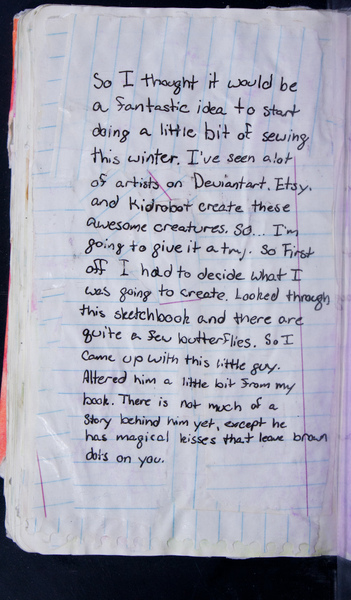 So I thought it would be
a fantastic idea to start
doing a little bit of sewing
this winter. I've seen alot
of artists on Deviantart, Etsy,
and Kidrobot create these
awesome creatures. So... I'm
going to give it a try. So First
off I had to decide what I
was going to create. Looked through
this sketchbook and there are
quite a few butterflies. So I
came up with this little guy.
Altered him a little bit from my
book. There is not much of a
story behind him yet, except he
has magical kisses that leave brown
dots on you.